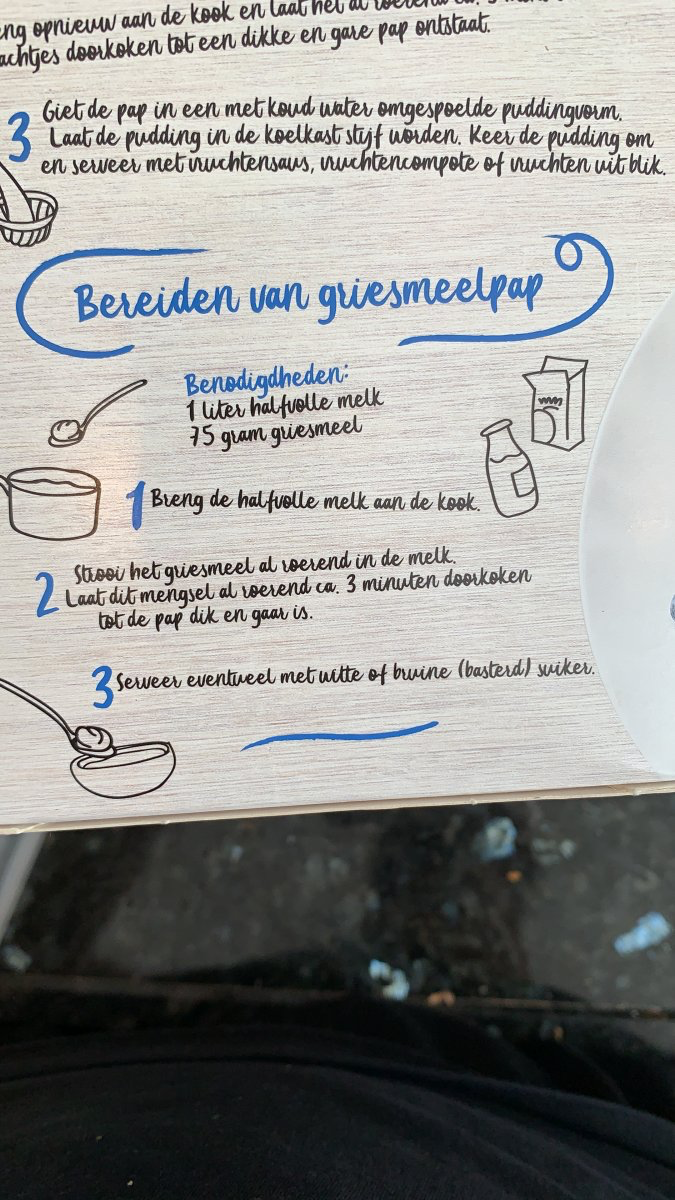 opnieuw aan de kook en laat het al roerend ca. 3
doorkoken tot een dikke en gare pap ontstaat.
3 Giet de pap in een met koud water omgespoelde puddingvorm.
Laat de pudding in de koelkast stijf worden. Keer de pudding om
en serveer met vruchtensaus, vruchtencompote of vruchten uit blik.
Bereiden van griesmeelpap
Benodigdheden:
1 liter halfvolle melk
75 gram griesmeel
1 Breng de halfvolle melk aan de kook.
2 Strooi het griesmeel al roerend in de melk.
Laat dit mengsel al roerend ca. 3 minuten doorkoken
tot de pap dik en gaar is.
3 Serveer eventueel met witte of bruine (basterd) suiker.